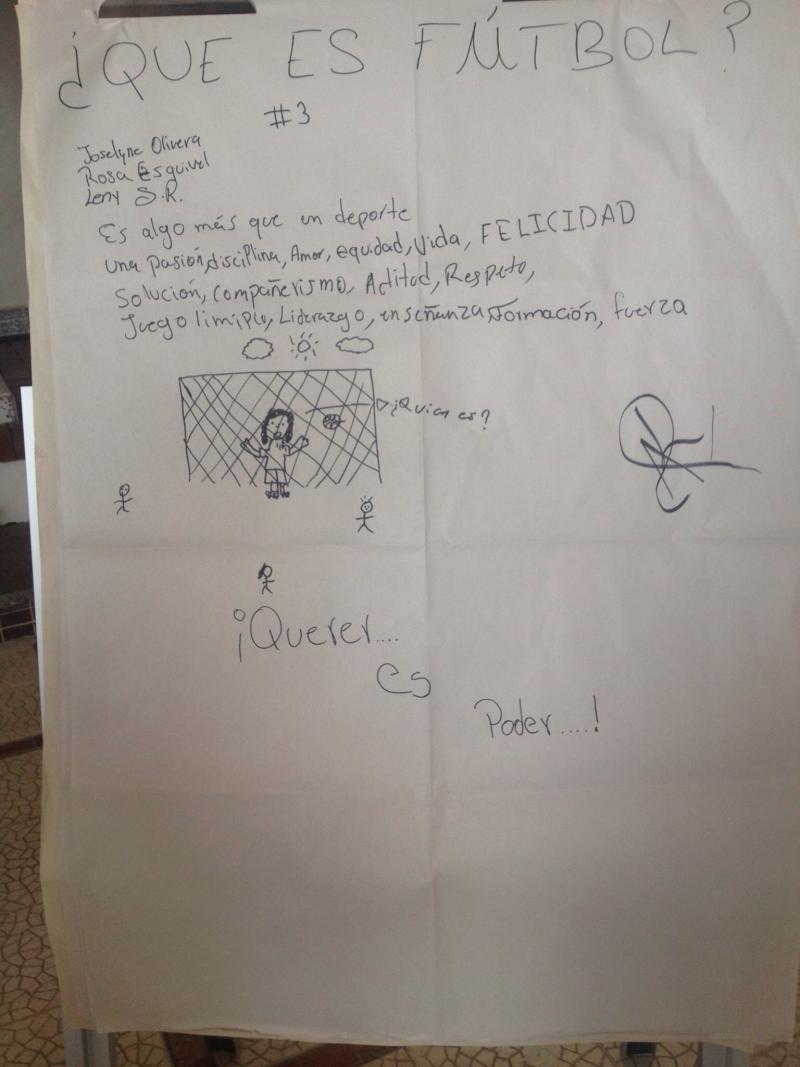 ¿QUE ES FÚTBOL?
#3
Joselyne Olivera
Rosa Esquivel
Leny S.R.
Es algo más que un deporte
una pasión, disciplina, Amor, equidad, Vida, FELICIDAD
Solución, compañerismo, Actitud, Respeto,
Juego limipio, Liderazgo, enseñanza, Formación, fuerza
¿Quien es?
¡Querer....
es
Poder....!